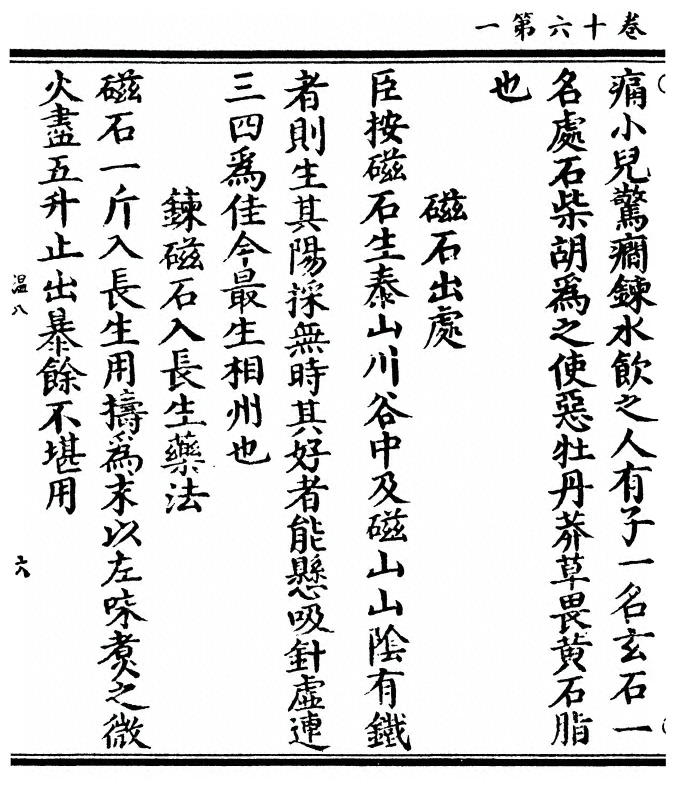 卷十六第一
痛小兒驚癇鍊水飲之人有子一名玄石一
名處石柴胡爲之使惡牡丹莽草畏黄石脂
也
磁石出處
臣按磁石生泰山川谷中及磁山山陰有鐵
者則生其陽採無時其好者能懸吸針虛連
三四爲佳今最生相州也
鍊磁石入長生藥法
磁石一斤入長生用擣爲末以左味煑之微
火盡五升止出暴餘不堪用
温八
六